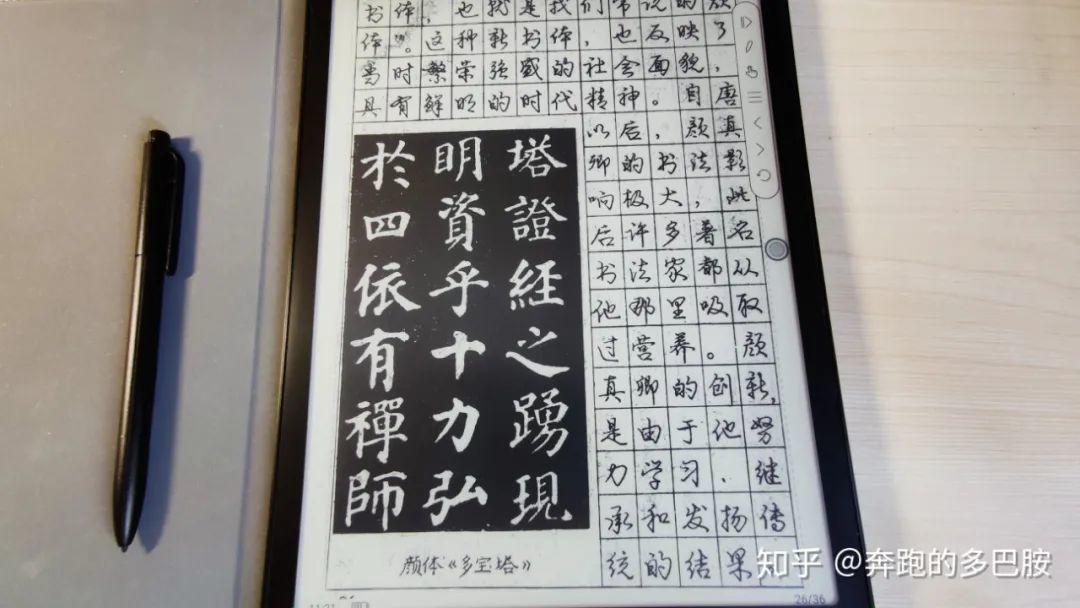 书体，也就是我们常说的颜
体”。这种新书体，也反映了
当时繁荣强盛的社会面貌，
具有鲜明的时代精神。自唐
以后，颜真
卿的书法影
响极大，此
后许多著名
书法家都从
他那里吸取
过营养。颜
真卿的创新，
是由于他努
力学习，继
承和发扬传
统的结果
塔證經之踴現
明資乎十力弘
於四依有禪師
颜体《多宝塔》
26/36
知乎 @奔跑的多巴胺